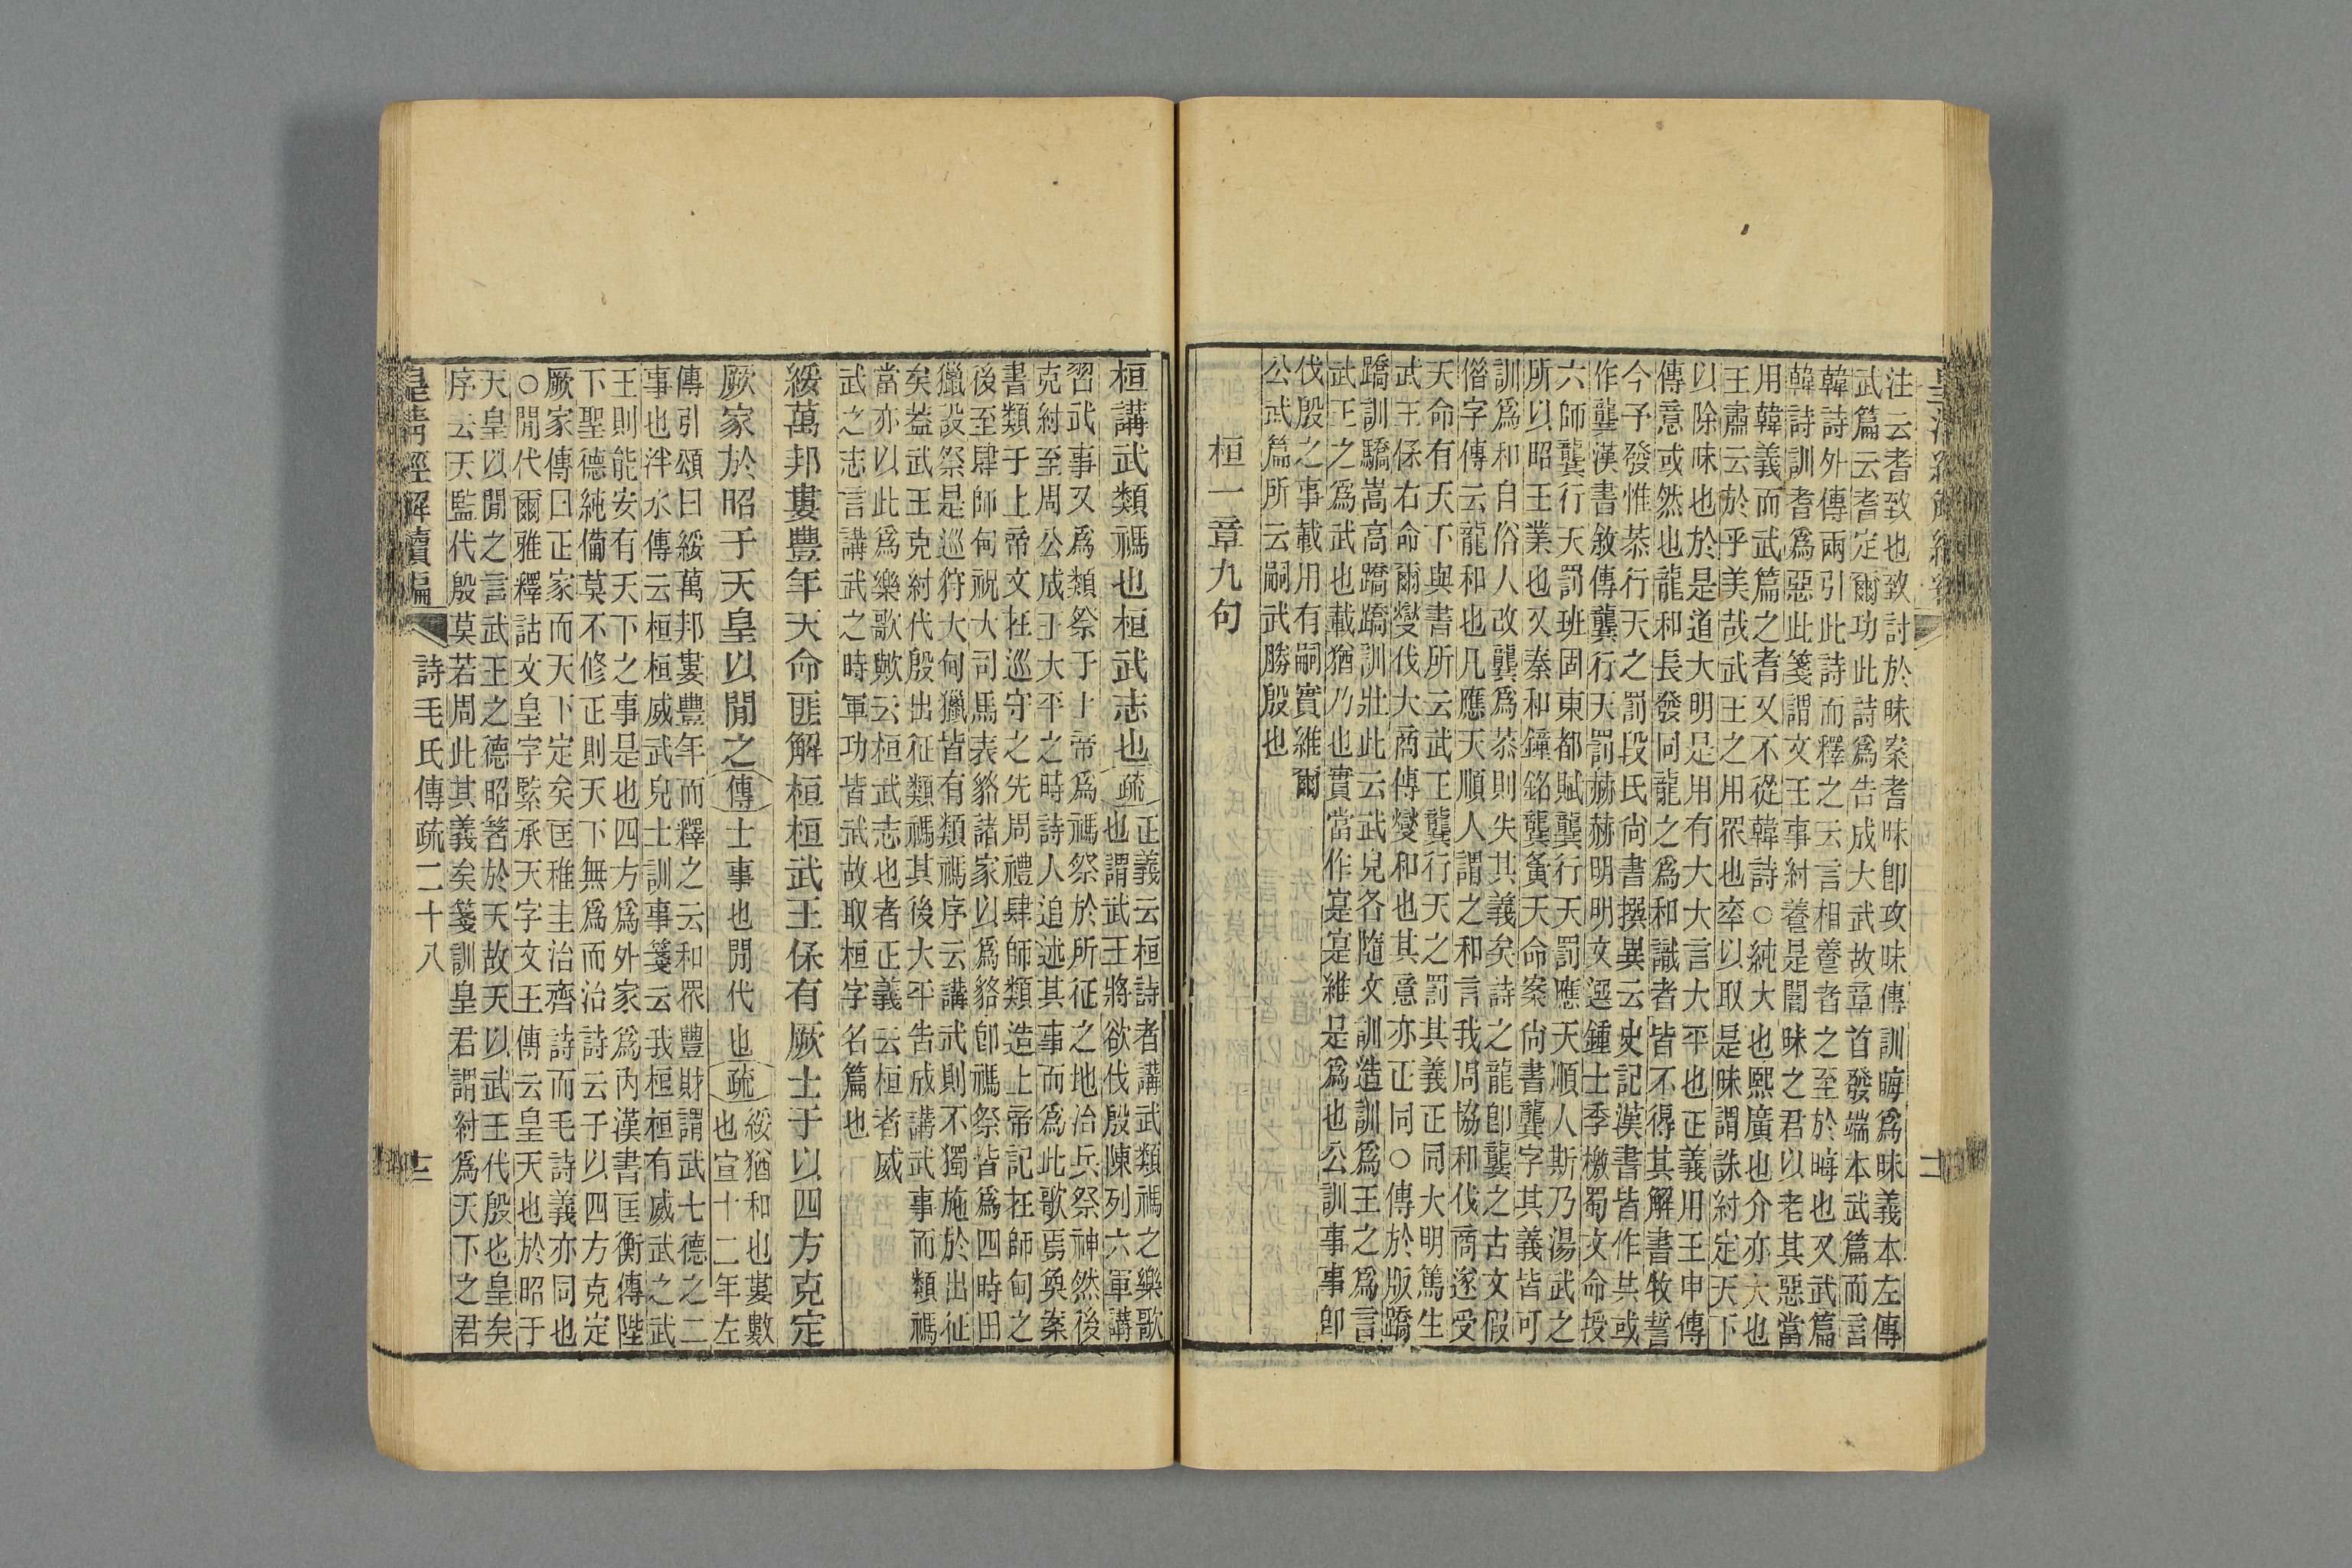 注云耆致也致討於昧案耆昧卽攻昧傳訓晦爲昧義本左傳
武篇云耆定爾功此詩爲告成大武故章首發端本武篇而言
韓詩外傳兩引此詩而釋之云言相養者之至於晦也又武篇
韓詩訓耆爲惡此箋謂文王事紂養是闇昧之君以老其惡當
用韓義而武篇之耆又不從韓詩○純大也熙廣也介亦大也
王肅云於乎美哉武王之用眾也率以取是昧謂誅紂定天下
以除昧也於是道大明是用有大大言大平也正義用王申傳
傳意或然也龍和長發同龍之爲和識者皆不得其解書牧誓
今予發惟恭行天之罰段氏尚書撰異云史記漢書皆作共或
作龔漢書敘傳龔行天罰赫赫明明文選鍾士季檄蜀文命授
六師龔行天罰班固東都賦龔行天罰應天順人斯乃湯武之
所以昭王業也又秦和鐘銘龔夤天命案尚書龔字其義皆可
訓爲和自俗人改龔爲恭則失其義矣詩之龍卽龔之古文假
僭字傳云龍和也凡應天順人謂之和言我周協和伐商遂受
天命有天下與書所云武王龔行天之罰其義正同大明篤生
武王保右命爾燮伐大商傳燮和也其意亦正同○傳於版蹻
蹻訓驕嵩高蹻蹻訓壯此云武皃各隨文訓造訓爲王之爲言
武王之爲武也載猶乃也實當作寔寔維是爲也公訓事事卽
伐殷之事載用有嗣實維爾
公武篇所云嗣武勝殷也
桓一章九句
桓講武類禡也桓武志也
疏
正義云桓詩者講武類禡之樂歌
也謂武王將欲伐殷陳列六軍講
習武事又爲類祭于上帝爲禡祭於所征之地治兵祭神然後
克紂至周公成王大平之時詩人追述其事而爲此歌焉奐案
書類于上帝文在巡守之先周禮肆師類造上帝記在師甸之
後至肆師甸祝大司馬表貉諸家以爲貉卽禡祭皆爲四時田
獵設祭是巡狩大甸獵皆有類禡序云講武則不獨施於出征
矣葢武王克紂代殷出征類禡其後大平告成講武事而類禡
當亦以此爲樂歌歟云桓武志也者正義云桓者威
武之志言講武之時軍功皆武故取桓字名篇也
綏萬邦婁豐年天命匪解桓桓武王保有厥士于以四方克定
厥家於昭于天皇以閒之
傳
士事也閒代也
疏
綏猶和也婁數
也宣十二年左
傳引頌曰綏萬邦婁豐年而釋之云和眾豐財謂武七德之二
事也泮水傳云桓桓威武皃士訓事箋云我桓桓有威武之武
王則能安有天下之事是也四方爲外家爲內漢書匡衡傳陛
下聖德純備莫不修正則天下無爲而治詩云于以四方克定
厥家傳曰正家而天下定矣匡稚圭治齊詩而毛詩義亦同也
○閒代爾雅釋詁文皇字緊承天字文王傳云皇天也於昭于
天皇以閒之言武王之德昭箸於天故天以武王代殷也皇矣
序云天監代殷莫若周此其義矣箋訓皇君謂紂爲天下之君
皇清經解續編
詩毛氏傳疏二十八